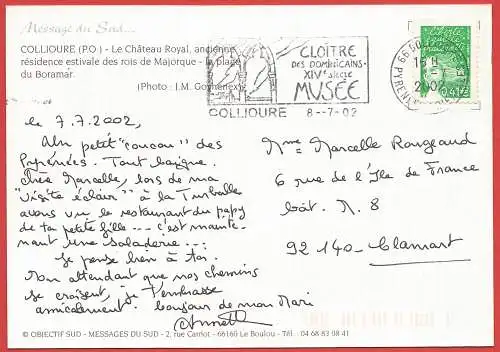 Message du Sud...
COLLIOURE (P.O) - Le Château Royal, ancienne
résidence estivale des rois de Majorque - la plage
du Boramar.
(Photo : J.M.
CLOÎTRE
DES DOMINICAINS
XIVe siècle
MUSÉE
COLLIOURE 8--7-02
66
2002
0,41€
le 7.7.2002,
Un petit "coucou" des
Pyrénées. Tout baigne.
Chère Marcelle, lors de ma
"visite éclair" à la Turballe
avons vu le restaurant du papy
de ta petite fille --- c'est mainte-
nant une saladerie...
Je pense bien à toi.
En attendant que nos chemins
se croisent, je t'embrasse
amicalement. bonjour de mon Mari
Annette
Mme Marcelle Rougeaud
6 rue de l'Ile de France
bât. N. 8
92140 - Clamart
© OBJECTIF SUD - MESSAGES DU SUD - 2, rue Carnot - 66160 Le Boulou - Tél. 04 68 83 08 41